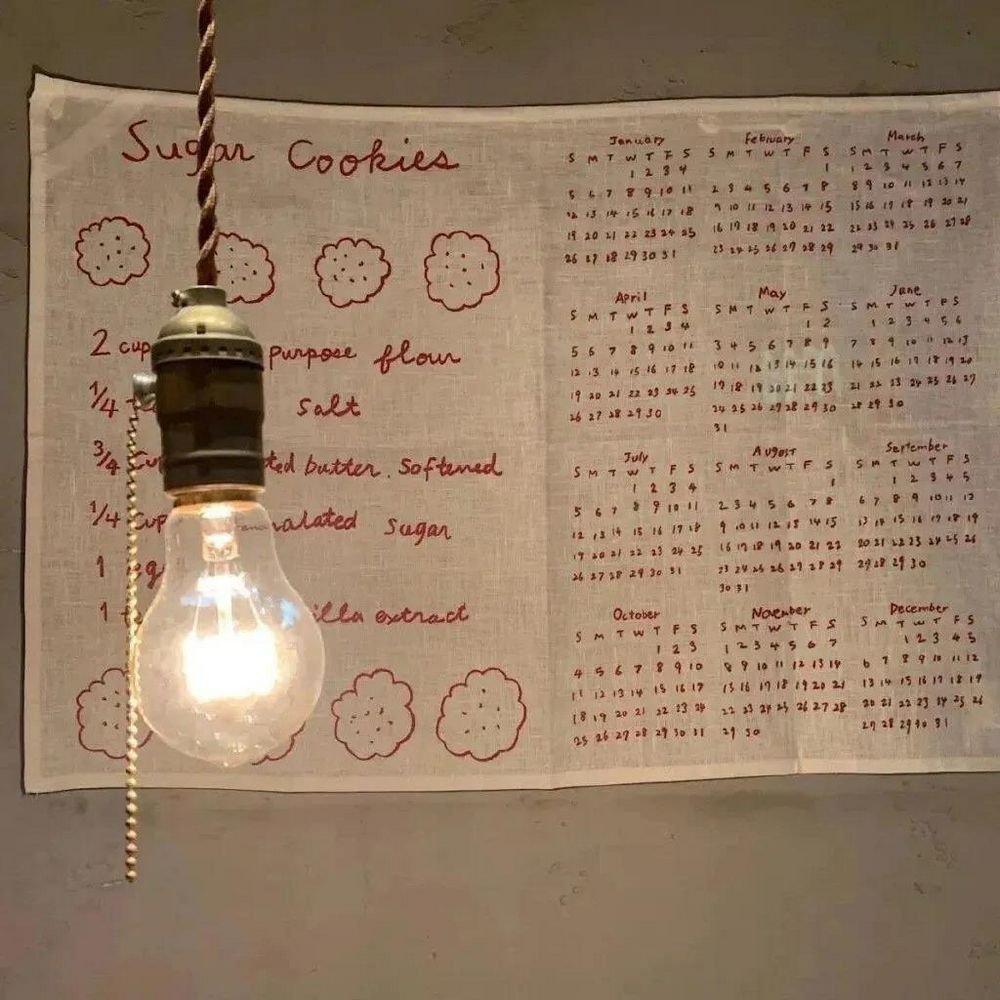 Sugar Cookies
2 cup purpose flour
1/4 salt
3/4 cu ted butter. Softened
1/4 cup alated sugar
1 eg
1 illa extract
January
S M T W T F S
1 2 3 4
5 6 7 8 9 10 11
12 13 14 15 16 17 18
19 20 21 22 23 24 25
26 27 28 29 30 31
February
S M T W T F S
1
2 3 4 5 6 7 8
9 10 11 12 13 14 15
16 17 18 19 20 21 22
23 24 25 26 27 28 29
March
S M T W T F S
1 2 3 4 5 6 7
8 9 10 11 12 13 14
15 16 17 18 19 20 21
22 23 24 25 26 27 28
29 30 31
April
S M T W T F S
1 2 3 4
5 6 7 8 9 10 11
12 13 14 15 16 17 18
19 20 21 22 23 24 25
26 27 28 29 30
May
S M T W T F S
1 2
3 4 5 6 7 8 9
10 11 12 13 14 15 16
17 18 19 20 21 22 23
24 25 26 27 28 29 30
31
June
S M T W T F S
1 2 3 4 5 6
7 8 9 10 11 12 13
14 15 16 17 18 19 20
21 22 23 24 25 26 27
28 29 30
July
S M T W T F S
1 2 3 4
5 6 7 8 9 10 11
12 13 14 15 16 17 18
19 20 21 22 23 24 25
26 27 28 29 30 31
August
S M T W T F S
1
2 3 4 5 6 7 8
9 10 11 12 13 14 15
16 17 18 19 20 21 22
23 24 25 26 27 28 29
30 31
September
S M T W T F S
1 2 3 4 5
6 7 8 9 10 11 12
13 14 15 16 17 18 19
20 21 22 23 24 25 26
27 28 29 30
October
S M T W T F S
1 2 3
4 5 6 7 8 9 10
11 12 13 14 15 16 17
18 19 20 21 22 23 24
25 26 27 28 29 30 31
November
S M T W T F S
1 2 3 4 5 6 7
8 9 10 11 12 13 14
15 16 17 18 19 20 21
22 23 24 25 26 27 28
29 30
December
S M T W T F S
1 2 3 4 5
6 7 8 9 10 11 12
13 14 15 16 17 18 19
20 21 22 23 24 25 26
27 28 29 30 31